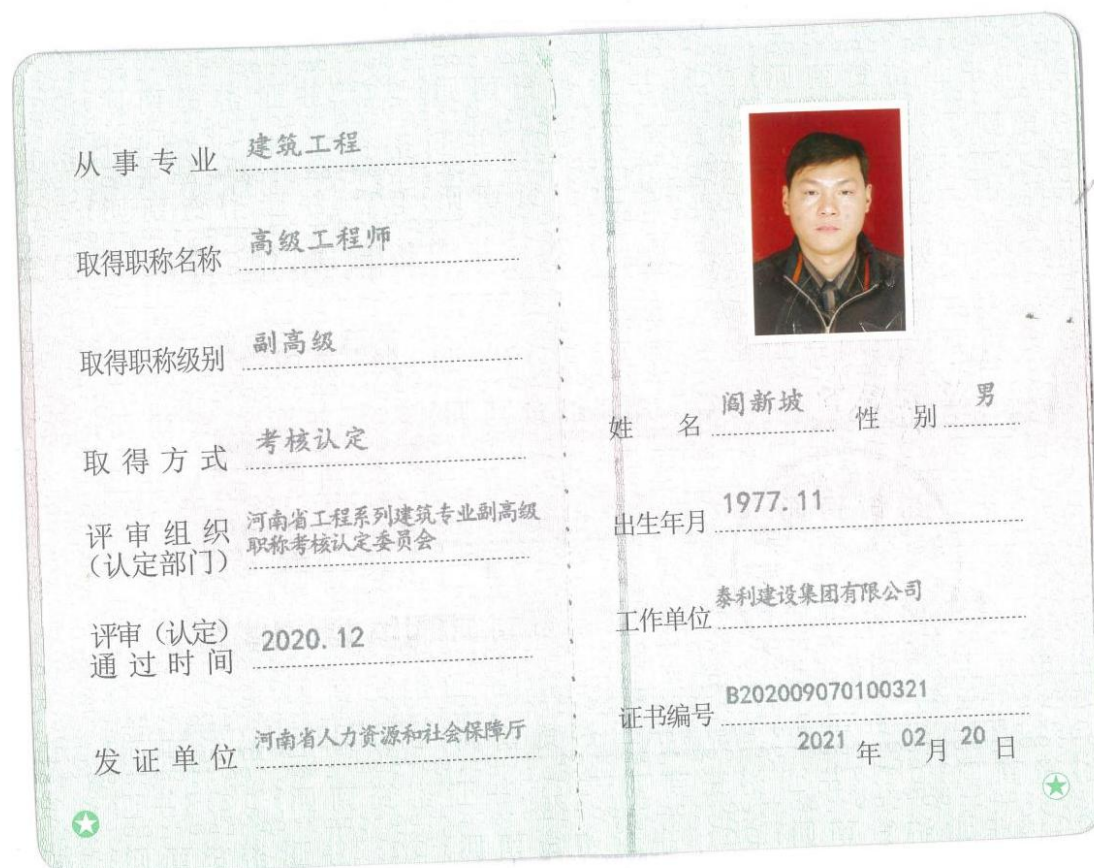 从事专业 建筑工程
取得职称名称 高级工程师
取得职称级别 副高级
取得方式 考核认定
评审组织 河南省工程系列建筑专业副高级
（认定部门） 职称考核认定委员会
评审（认定）
通过时间 2020.12
发证单位 河南省人力资源和社会保障厅
姓名 阎新坡 性别 男
出生年月 1977.11
工作单位 泰利建设集团有限公司
证书编号 B202009070100321
2021年02月20日